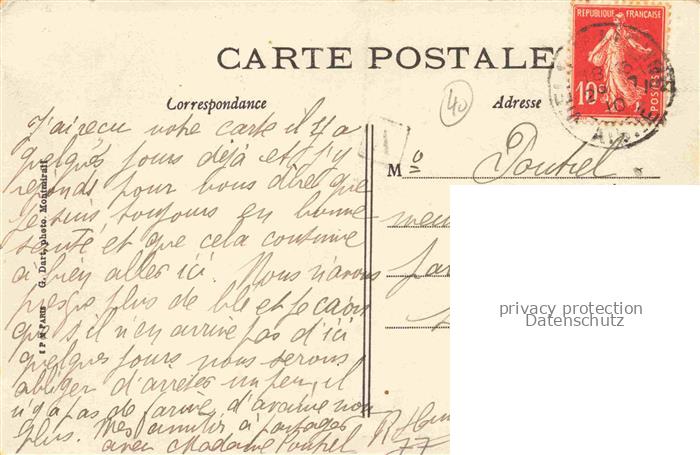 CARTE POSTALE
RÉPUBLIQUE FRANÇAISE
10c
POSTES
Correspondance
Adresse
40
J'ai reçu votre carte il y a
quelques jours déjà et j'y
reponds pour vous dire que
je suis toujours en bonne
santé et que cela continue
à bien aller ici. Nous n'avons
presque plus de blé et je crois
que s'il n'en arrive pas d'ici
quelques jours nous serons
obliger d'arrêter un peu, il
n'y a pas de farine, d'avoine non
plus. Mes amitiés à partager
avec Madame Poutrel
Mr Poutrel
meu
far
77
I P M PARIS G. Dart, photo. Montmirail
privacy protection
Datenschutz